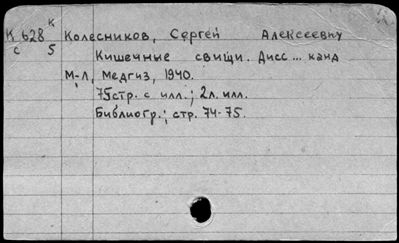 К
К 628 Колесников, Сергей Алексеевич
с 5 Кишечные свищи. Дисс... канд
М-Л, Медгиз, 1940.
75стр. с илл.; 2л. илл.
Библиогр.; стр. 74-75.